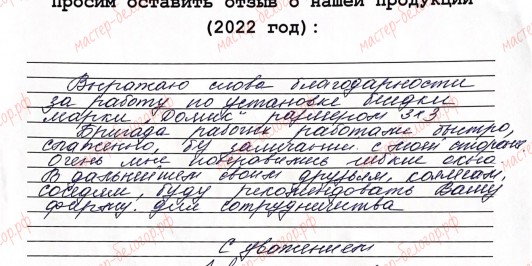 Просим оставить отзыв о нашей продукции
(2022 год):
Выражаю слова благодарности
за работу по установке беседки
марки "Домик" размером 3х3
Бригада рабочих работали быстро,
слаженно, без замечаний с моей стороны.
Очень мне понравились гибкие окна
В дальнейшем своим друзьям, коллегам,
соседям, буду рекомендовать Вашу
фирму для сотрудничества
С уважением